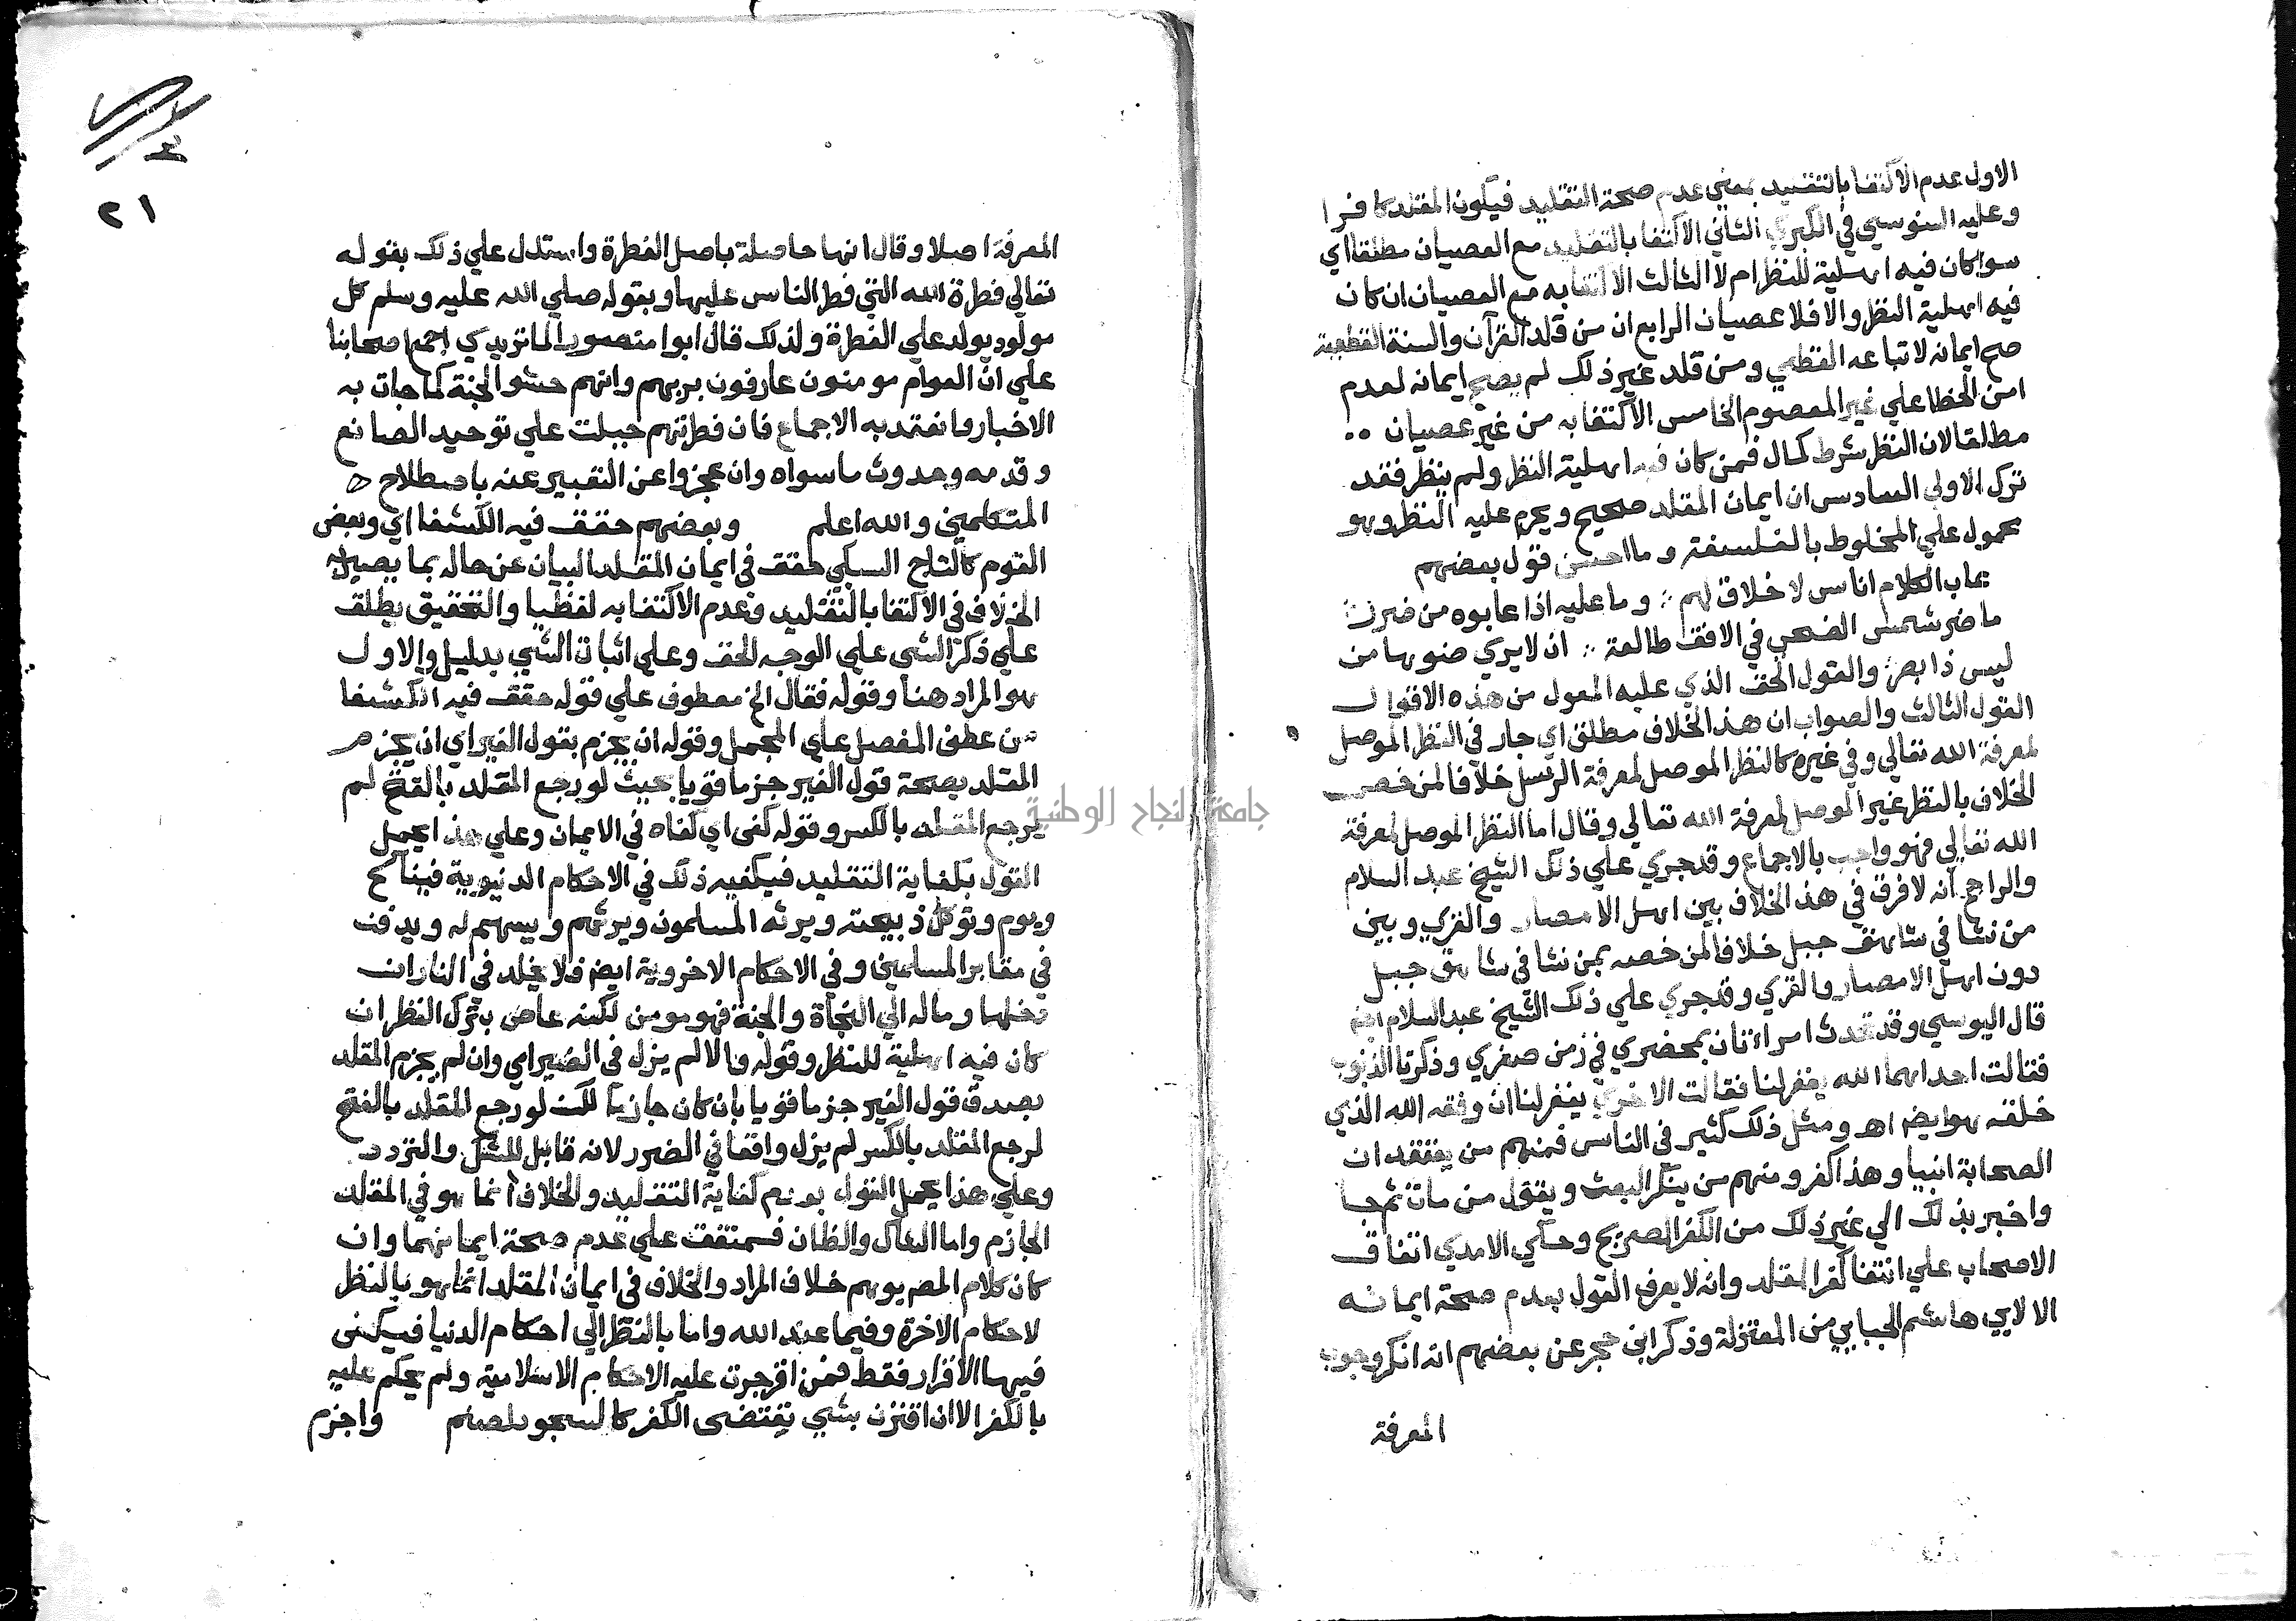 الاول عدم الاكتفا بالتقليد بمعني عدم صحة التقليد فيكون المقلد كافرا
وعليه السنوسي في الكبري الثاني الاكتفا بالتقليد مع العصيان مطلقا اي
سوا كان فيه اهلية للنظر ام لا الثالث الاكتفا به مع العصيان ان كان
فيه اهلية النظر والا فلا عصيان الرابع ان من قلد القرآن والسنة القطعية
صح ايمانه لاتباعه القطعي ومن قلد غير ذلك لم يصح ايمانه لعدم
امن الخطا علي غير المعصوم الخامس الاكتفا به من غير عصيان ..
مطلقا لان النظر شرط كمال فمن كان فيه اهلية النظر ولم ينظر فقد
ترك الاولي السادس ان ايمان المقلد صحيح ويحرم عليه النظر وهو
محمول علي المخلوط بالفلسفة وما احسن قول بعضهم
عاب الكلام اناس لا خلاق لهم ∴ وما عليه اذا عابوه من ضرر
ما ضر شمس الضحي في الافق طالعة ∴ ان لا يري ضوها من
ليس ذا بصر والقول الحق الذي عليه المعول من هذه الاقوال
القول الثالث والصواب ان هذا الخلاف مطلق اي جار في النظر الموصل
لمعرفة الله تعالي وفي غيره كالنظر الموصل لمعرفة الرسل خلافا لمن خص
الخلاف بالنظر غير الموصل لمعرفة الله تعالي وقال اما النظر الموصل لمعرفة
الله تعالي فهو واجب بالاجماع وقد جري علي ذلك الشيخ عبد السلام
والراجح انه لا فرق في هذا الخلاف بين اهل الامصار والقري وبين
من نشا في شاهق جبل خلافا لمن خصه بمن نشا في شاهق جبل
دون اهل الامصار والقري وقد جري علي ذلك الشيخ عبد السلام ايض
قال اليوسي وقد تحدث امراتان بمحضري في زمن صغري وذكرتا الذنوب
فقالت احداهما الله يغفر لنا فقالت الاخري يغفر لنا ان وفقه الله الذي
خلقه هو ايض اهـ ومثل ذلك كثير في الناس فمنهم من يعتقد ان
الصحابة انبيا وهذا كفر ومنهم من ينكر البعث ويقول من مات ثم جا
واخبر بذلك الي غير ذلك من الكفر الصريح وحكي الامدي اتفاق
الاصحاب علي انتفا كفر المقلد وانه لا يعرف القول بعدم صحة ايمانه
الا لابي هاشم الجبايي من المعتزلة وذكر ابن حجر عن بعضهم انه انكر وجوب
المعرفة
٢١
المعرفة اصلا وقال انها حاصلة باصل الفطرة واستدل علي ذلك بقوله
تعالي فطرة الله التي فطر الناس عليها وبقوله صلي الله عليه وسلم كل
مولود يولد علي الفطرة ولذلك قال ابوا منصور الماتريدي اجمع اصحابنا
علي ان العوام مومنون عارفون بربهم وانهم حشو الجنة كما جات به
الاخبار وانعقد به الاجماع فان فطرتهم جبلت علي توحيد الصانع
وقدمه وحدوث ما سواه وان عجزوا عن التعبير عنه باصطلاح
المتكلمين والله اعلم وبعضهم حقق فيه الكشفا اي وبعض
القوم كالتاج السبكي حقق في ايمان المقلد البيان عن حاله بما يصير به
الخلاف في الاكتفا بالتقليد وعدم الاكتفا به لفظيا والتحقيق يطلق
علي ذكر الشي علي الوجه الحق وعلي اثبات الشي بدليل والاول
هو المراد هنا وقوله فقال الخ معطوف علي قوله حقق فيه الكشفا
من عطف المفصل علي المجمل وقوله ان يجزم بقول الغير اي ان يجزم
المقلد بصحة قول الغير جزما قويا بحيث لو رجع المقلد بالفتح لم
يرجع المقلد بالكسر وقوله كفي اي كفاه في الايمان وعلي هذا يحمل
القول بكفاية التقليد فيكفيه ذلك في الاحكام الدنيوية فيناكح
ويوم وتوكل ذبيحته ويرثه المسلمون ويرثهم ويسهم له ويدفن
في مقابر المسلمين وفي الاحكام الاخروية ايض فلا يخلد في النار ان
دخلها وماله الي النجاة والجنة فهو مومن لكنه عاص بترك النظر ان
كان فيه اهلية للنظر وقوله والا لم يزل في الضير اي وان لم يجزم المقلد
بصدق قول الغير جزما قويا بان كان جازما لكن لو رجع المقلد بالفتح
لرجع المقلد بالكسر لم يزل واقفا في الضرر لانه قابل للشك والتردد
وعلي هذا يحمل القول بعدم كفاية التقليد والخلاف انما هو في المقلد
الجازم واما الشاك والظان فمتفق علي عدم صحة ايمانهما وان
كان كلام المص يوهم خلاف المراد والخلاف في ايمان المقلد انما هو بالنظر
لاحكام الاخرة وفيما عند الله واما بالنظر الي احكام الدنيا فيكفي
فيها الاقرار فقط فمن اقر جرت عليه الاحكام الاسلامية ولم يحكم عليه
بالكفر الا ان اقترن بشي يقتضي الكفر كالسجود لصنم واجزم
جامعة النجاح الوطنية